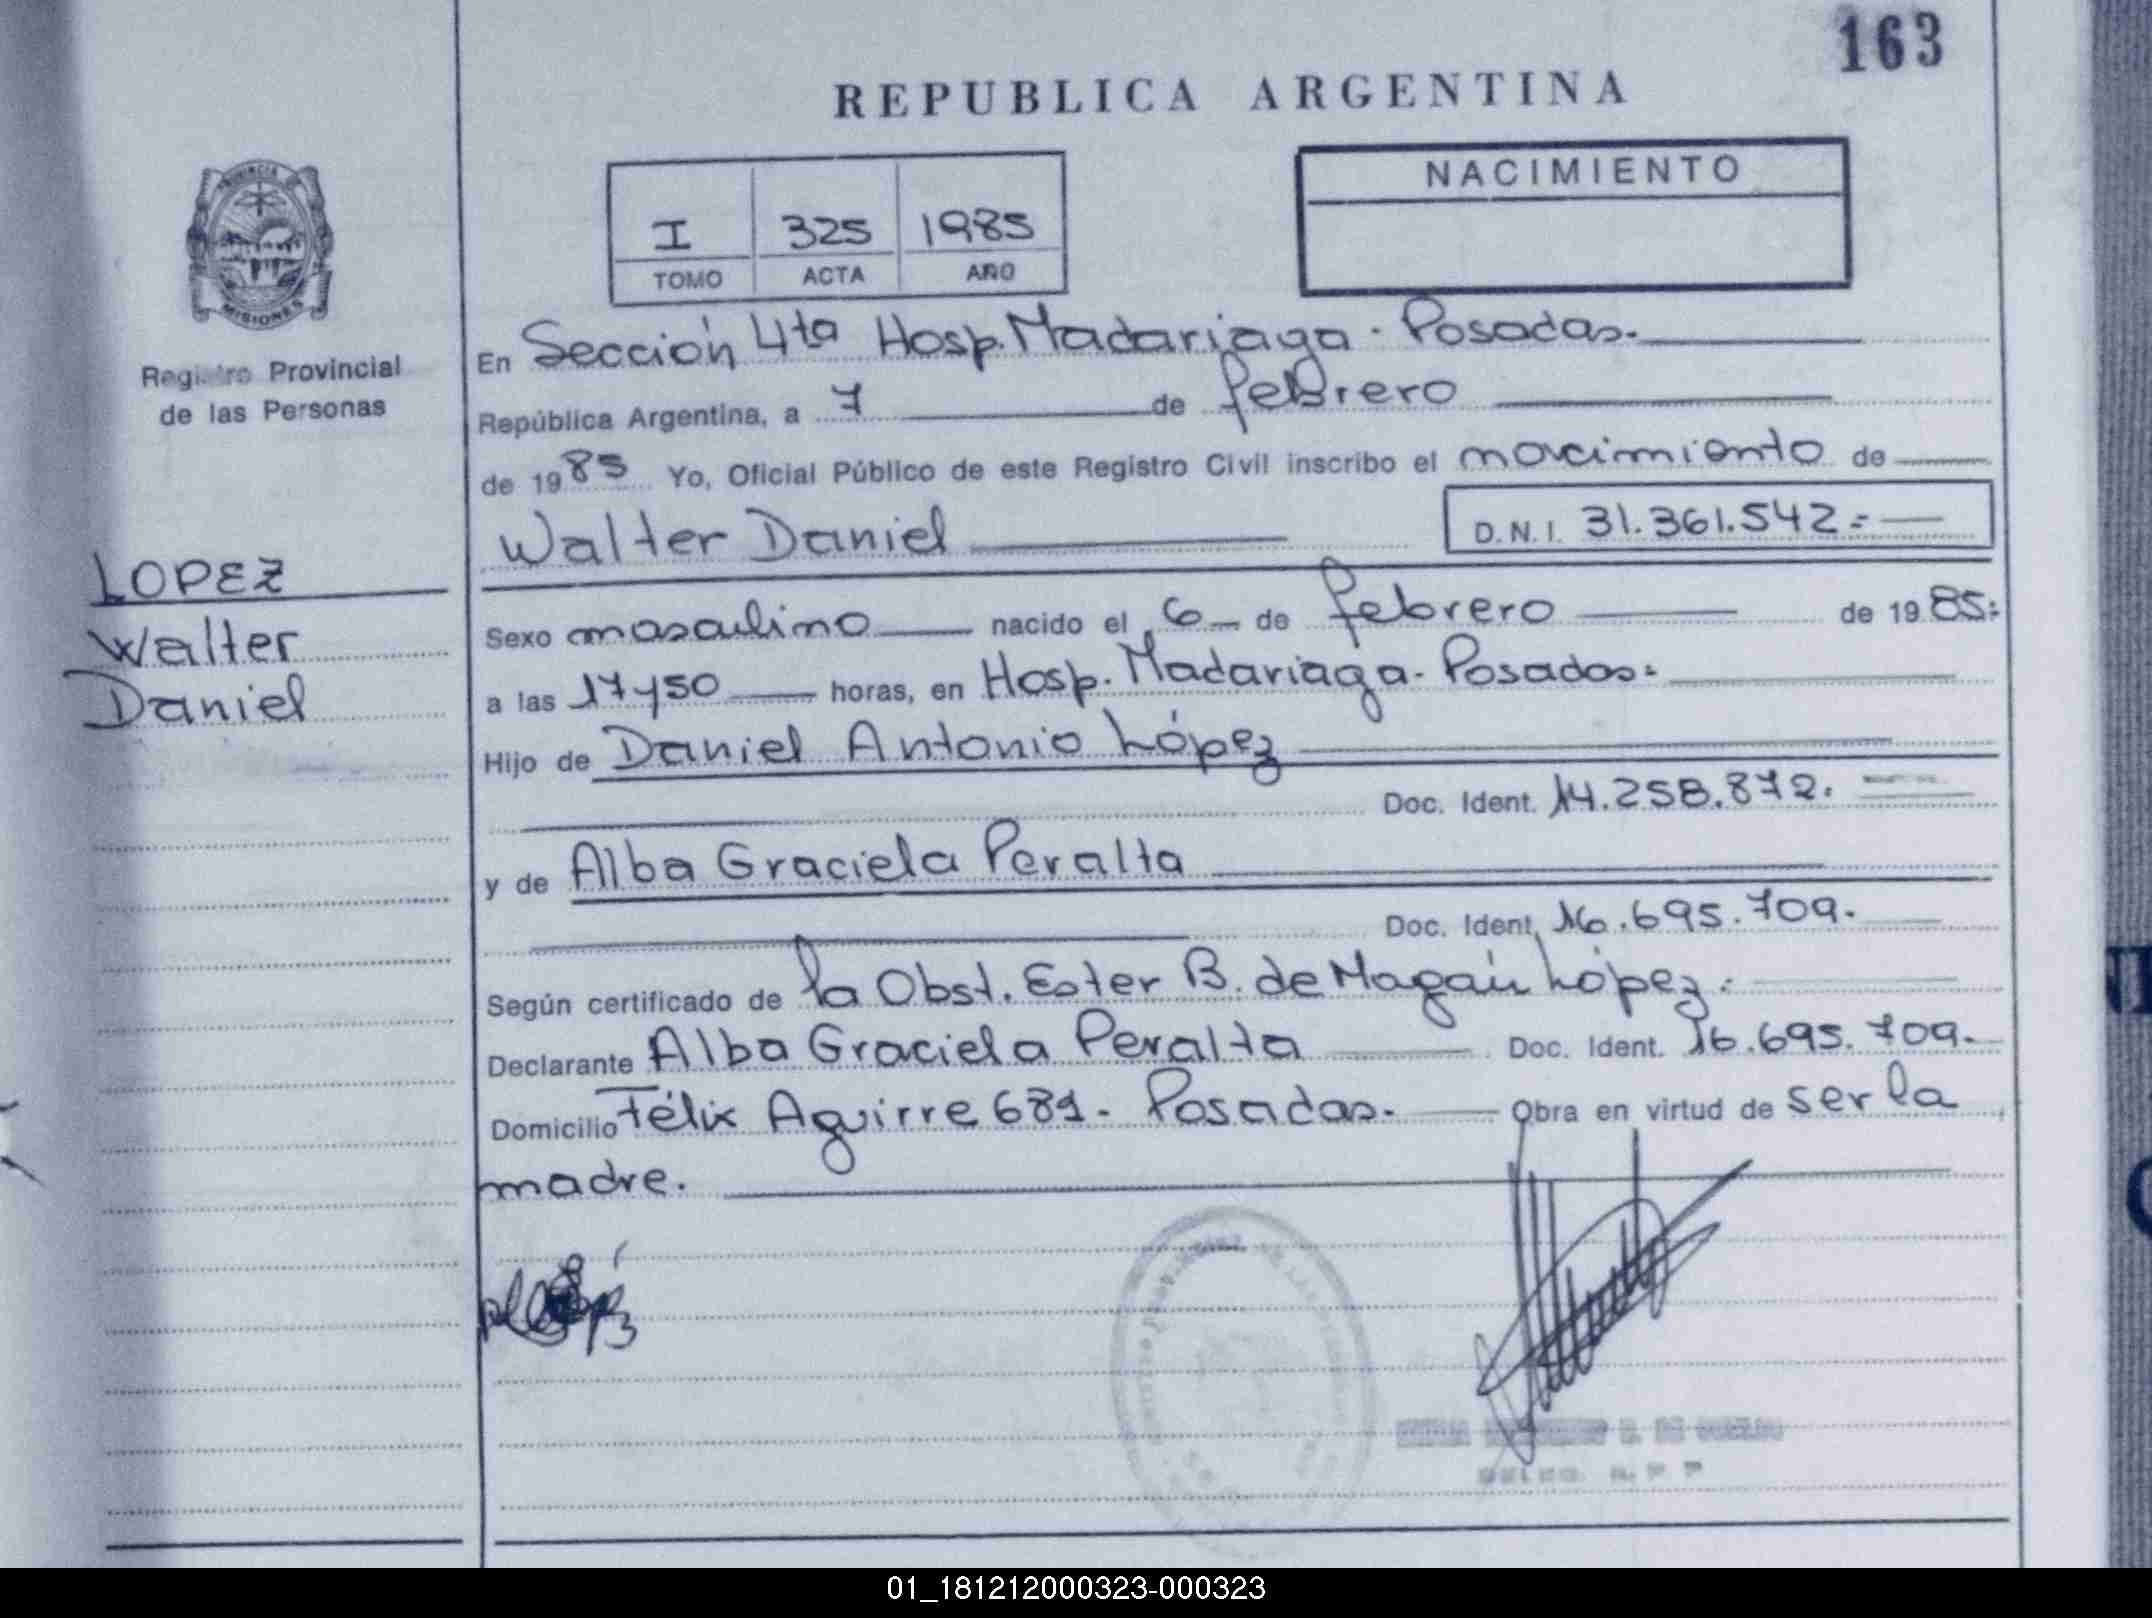 163
REPUBLICA ARGENTINA
PROVINCIA DE
MISIONES
Registro Provincial
de las Personas
I 325 1985
TOMO ACTA AÑO
NACIMIENTO
En Sección 4ta Hosp. Madariaga - Posadas.
República Argentina, a 7 de febrero
de 1985 Yo, Oficial Público de este Registro Civil inscribo el nacimiento de
Walter Daniel D.N.I. 31.361.542.=
LOPEZ
Walter
Daniel
Sexo masculino nacido el 6 de febrero de 1985:
a las 17 y 50 horas, en Hosp. Madariaga - Posadas.
Hijo de Daniel Antonio López
Doc. Ident. 14.258.872.
y de Alba Graciela Peralta
Doc. Ident. 16.695.709.
Según certificado de la Obst. Ester B. de Magaín López.
Declarante Alba Graciela Peralta Doc. Ident. 16.695.709.
Domicilio Félix Aguirre 681 - Posadas. Obra en virtud de ser la
madre.
01_181212000323-000323